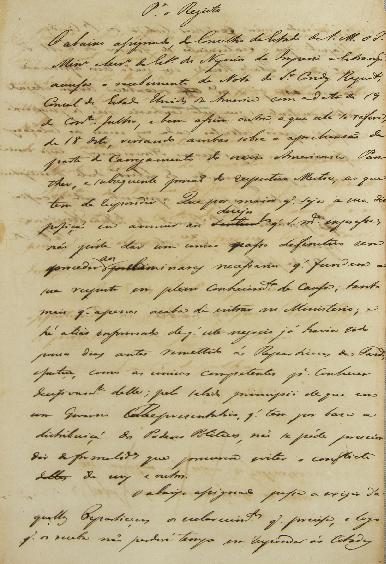 Pª. o Registo
O abaixo assignado do Conselho de Estado de S. M. o I.
Minº. e Secrº. de Estº. dos Negocios do Imperio e Estrangº.
accusa o recebimento da Nota do Sr. Condy Raguet,
Consul dos Estados Unidos da America com a data de 19
do corrte. Julho, e bem assim outra a que ella se refere,
de 18 dito, versando ambas sobre a aprehensão de
parte do Carregamento do navio Americano Pan-
ther, e subsequente prisão do respectivo Mestre, ao que
tem de responder: Que por maior q. seja a sua
em annuir ao desejo q. S. mce. expressa,
não póde dar um unico passo definitivo sem
proceder ao preliminar necessario q. fundem a
sua resposta em pleno conhecimto. de Causa; tanto
mais q. apenas acaba de entrar no Ministerio, e
hé aliás informado de q. este negocio já havia sido
poucos dias antes remettido ás Repartiçoens da Fazdª.
como as unicas competentes pª. conhecer
delle; pelo sabido principio de que em
um Governo Representativo, q. tem por base a
distribuiçaõ dos Poderes Politicos, não se póde prescin-
dir de formalides. que possaõ evitar o conflicto
de uns e outros.
O abaixo assignado passa a exigir da-
quellas Repartiçoens os esclarecimtos. q. precisa, e logo
q. os receba não perderá tempo em responder ao Cidadaõ